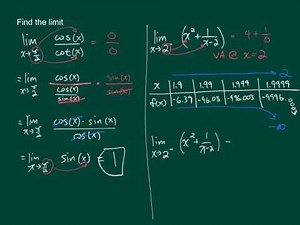 Find the limit
lim x→π/2 cos(x)/cot(x) = 0/0
= lim x→π/2 cos(x)/(cos(x)/sin(x)) · sin(x)/sin(x)
= lim x→π/2 cos(x) · sin(x)/cos(x)
= lim x→π/2 sin(x) = 1
lim x→2⁻ (x² + 1/(x-2)) = 4 + 1/0
VA @ x = 2
→ 2
x 1.9 1.99 1.999 1.9999
f(x) -6.39 -96.03 -996.003 -9996.0003
→ -∞
lim x→2⁻ (x² + 1/(x-2)) =